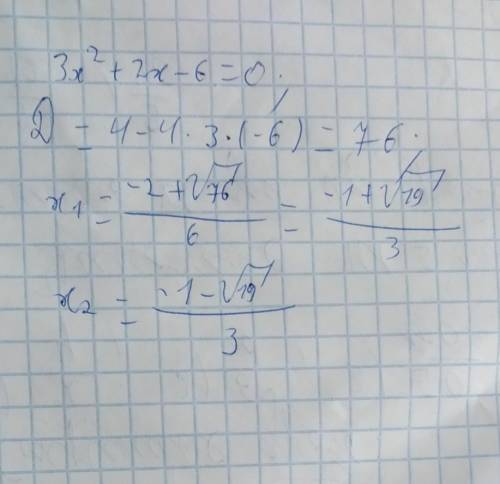 3x² + 2x - 6 = 0.
D = 4 - 4 · 3 · (-6) = 76.
x₁ = (-2 + √76) / 6 = (-1 + √19) / 3
x₂ = (-1 - √19) / 3